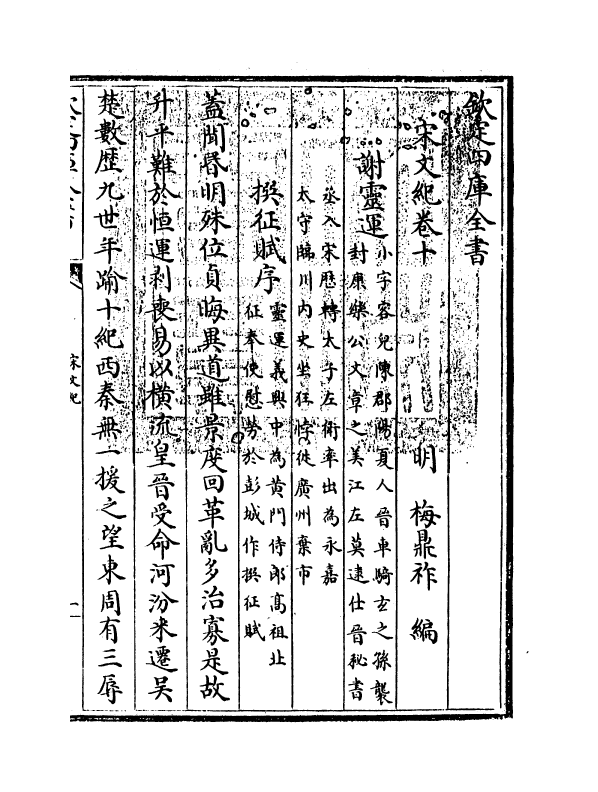 欽定四庫全書
宋文紀卷十
明 梅鼎祚 編
謝靈運
小字容兒陳郡陽夏人晉車騎玄之孫襲
封康樂公文章之美江左莫逮仕晉秘書
丞入宋歷轉太子左衛率出為永嘉
太守臨川内史坐狂悖徙廣州棄市
撰征賦序
靈運義熙中為黄門侍郎髙祖北
征奉使慰勞於彭城作撰征賦
蓋聞昏明殊位貞晦異道雖景度回革亂多治寡是故
升平難於恒運剥喪易以横流皇晉受命河汾来遷吴
楚數歴九世年踰十紀西秦無一援之望東周有三辱
宋文紀